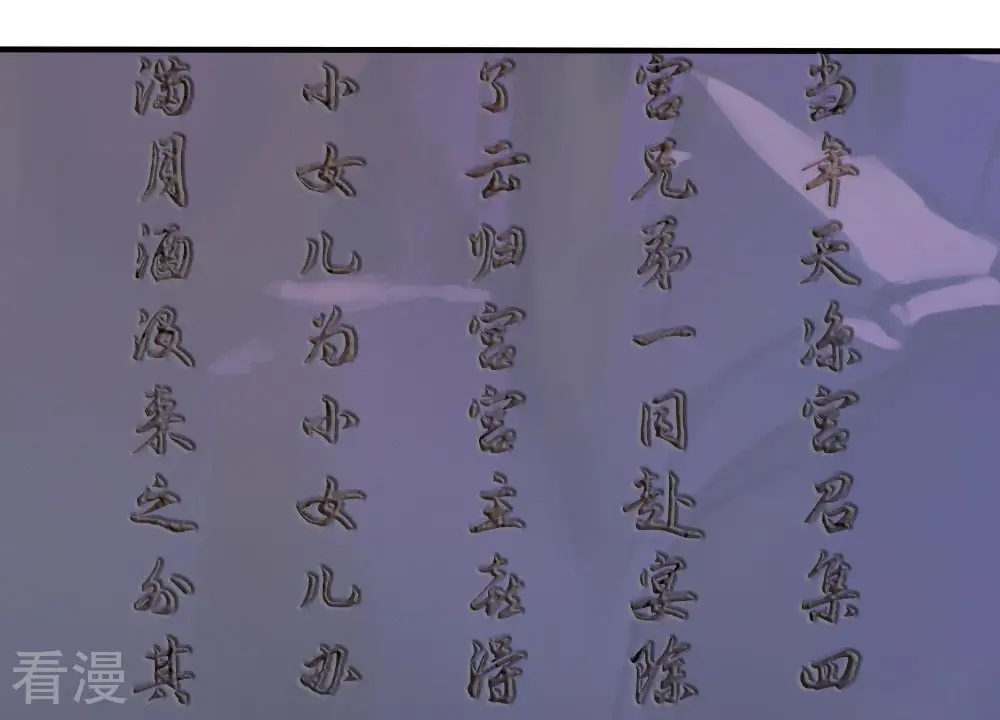 当年天凉宫召集四
宫兄弟一同赴宴除
了云归宫宫主喜得
小女儿为小女儿办
满月酒没来之外其
看漫